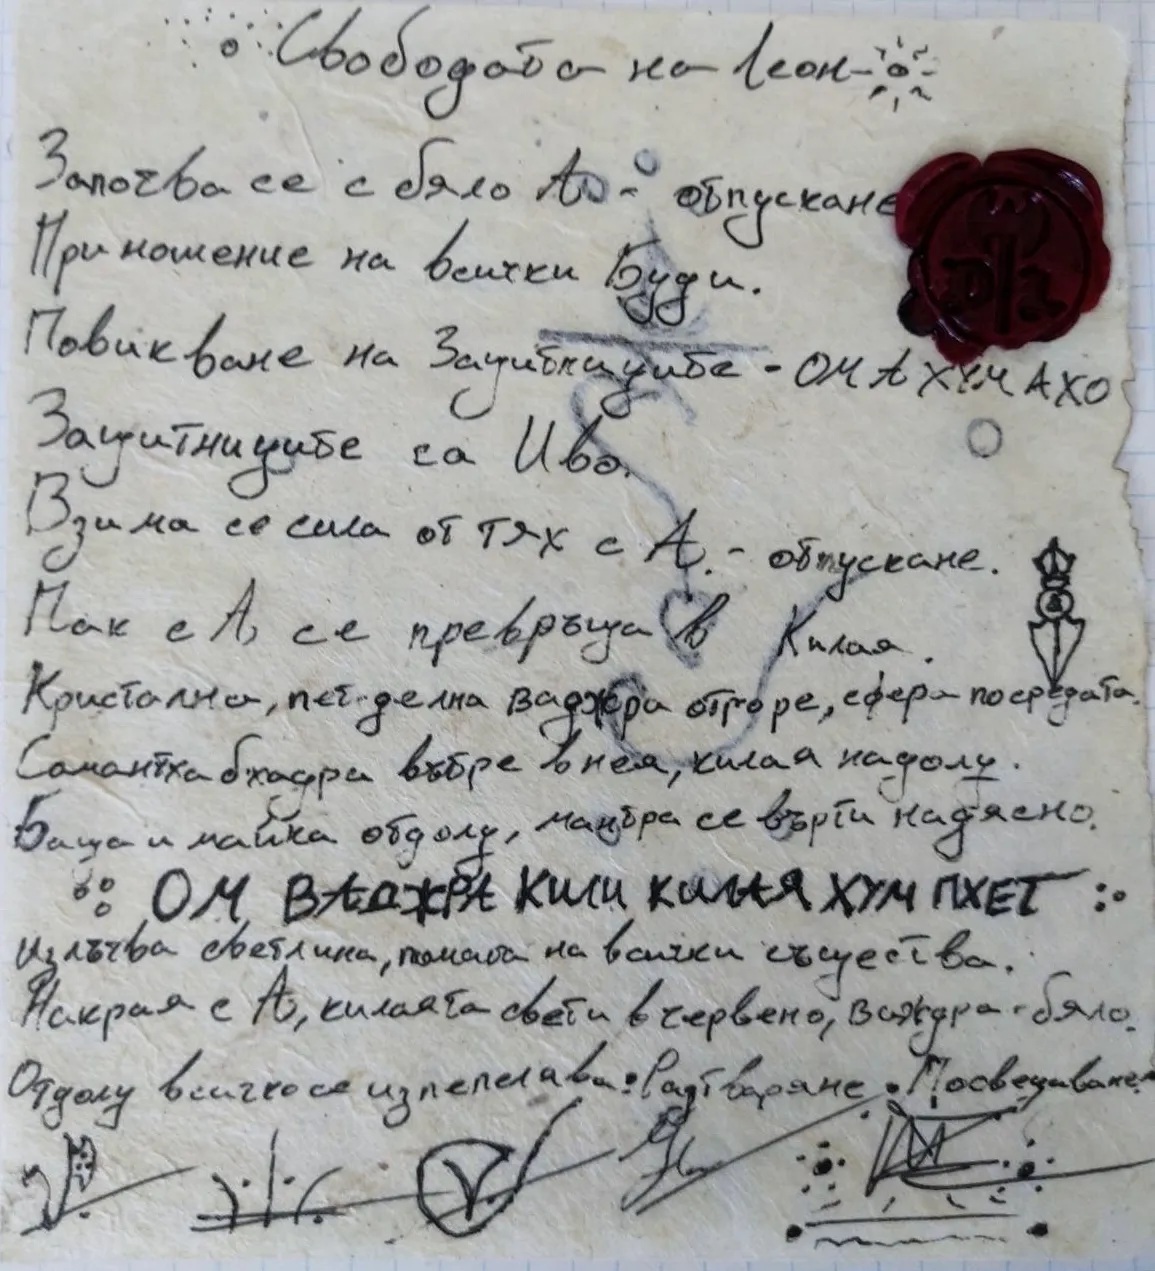 Свободата на Леон
Започва се с бяло А - отпускане
Приношение на всички Буди.
Повикване на Защитниците - ОМ А ХУМ А ХО
Защитниците са Иво.
Взима се сила от тях с А. - отпускане.
Пак с А, се превръща в Килая.
Кристална, пет-делна ваджра отгоре, сфера посредата.
Самантхабхадра вътре в нея, килая надолу.
Баща и майка отдолу, мантра се върти надясно.
ОМ ВАДЖРА КИЛИ КИЛАЯ ХУМ ПХЕТ
Излъчва светлина, помага на всички същества.
Накрая с А, килаята свети в червено, важдра - бяло.
Отдолу всичко се изпепелява. Разтваряне. Посвещаване.